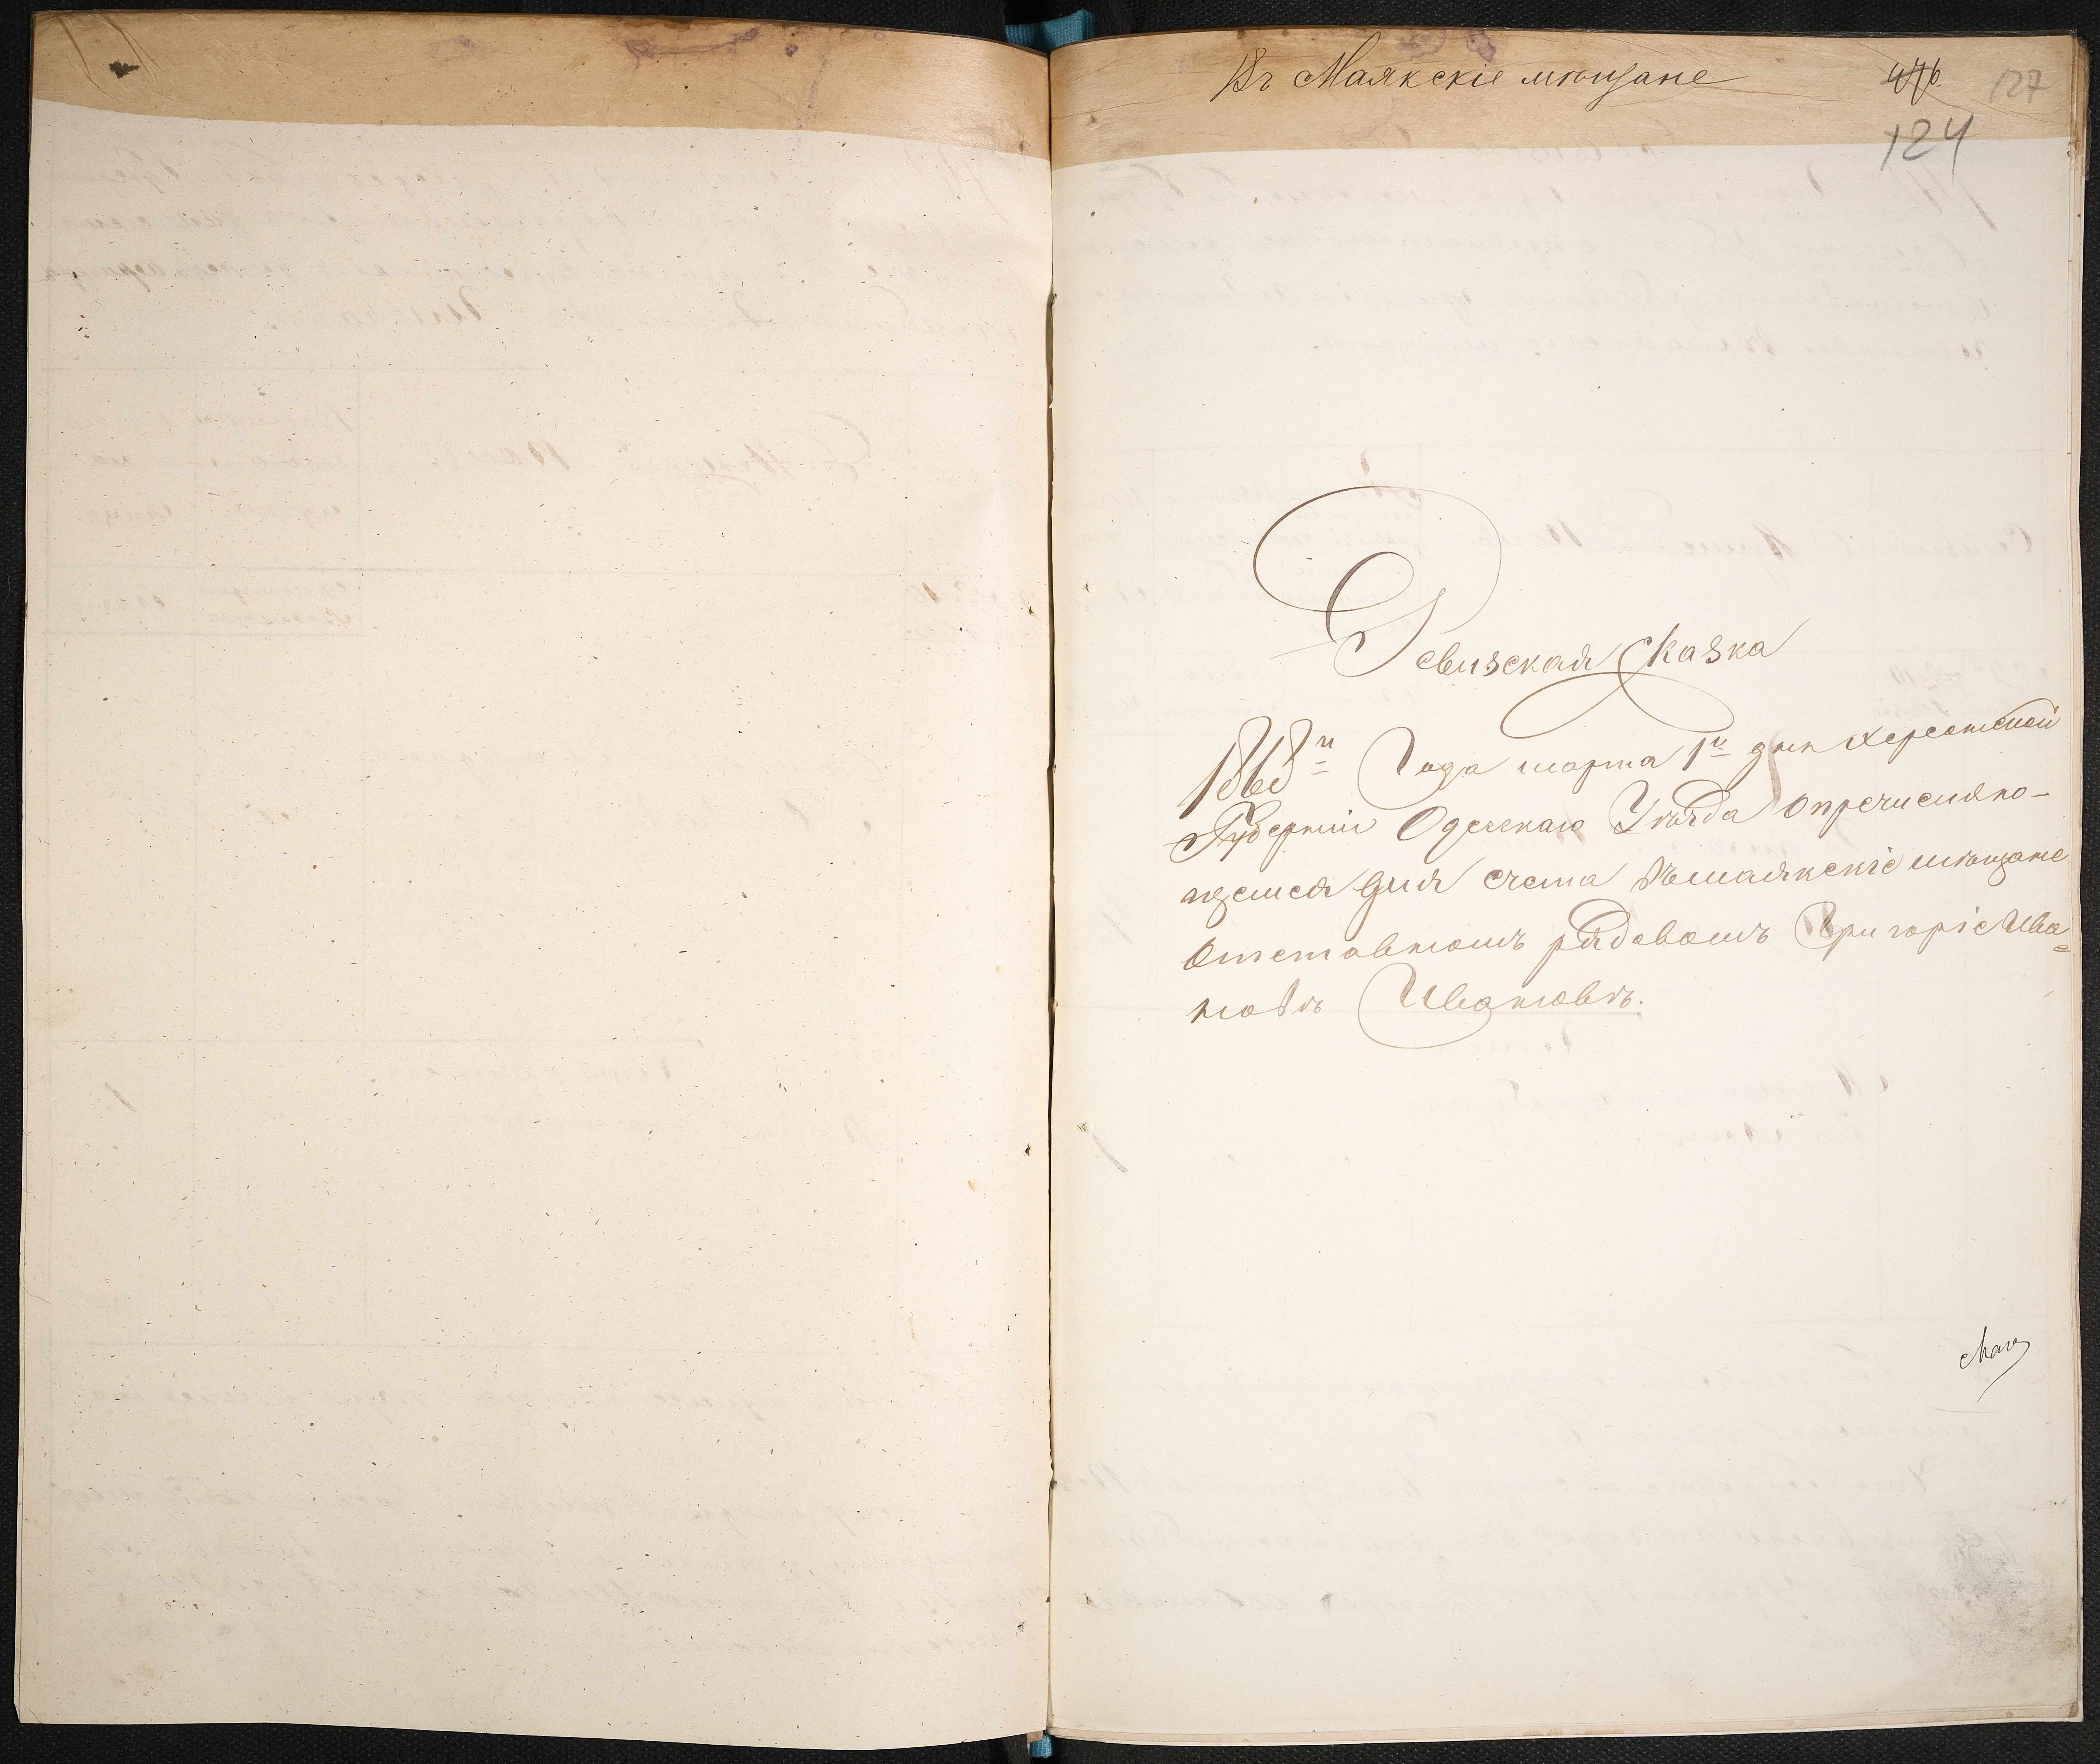 Въ Маякскіе мѣщане
476
127
124
Ревизская Сказка
1868го Года марта 1го дня Херсонской
Губерніи Одесскаго Уѣзда о причисляю-
щемся для счета въ маякскіе мѣщане
отставномъ рядовомъ Григоріе Ива=
новѣ Ивановѣ.